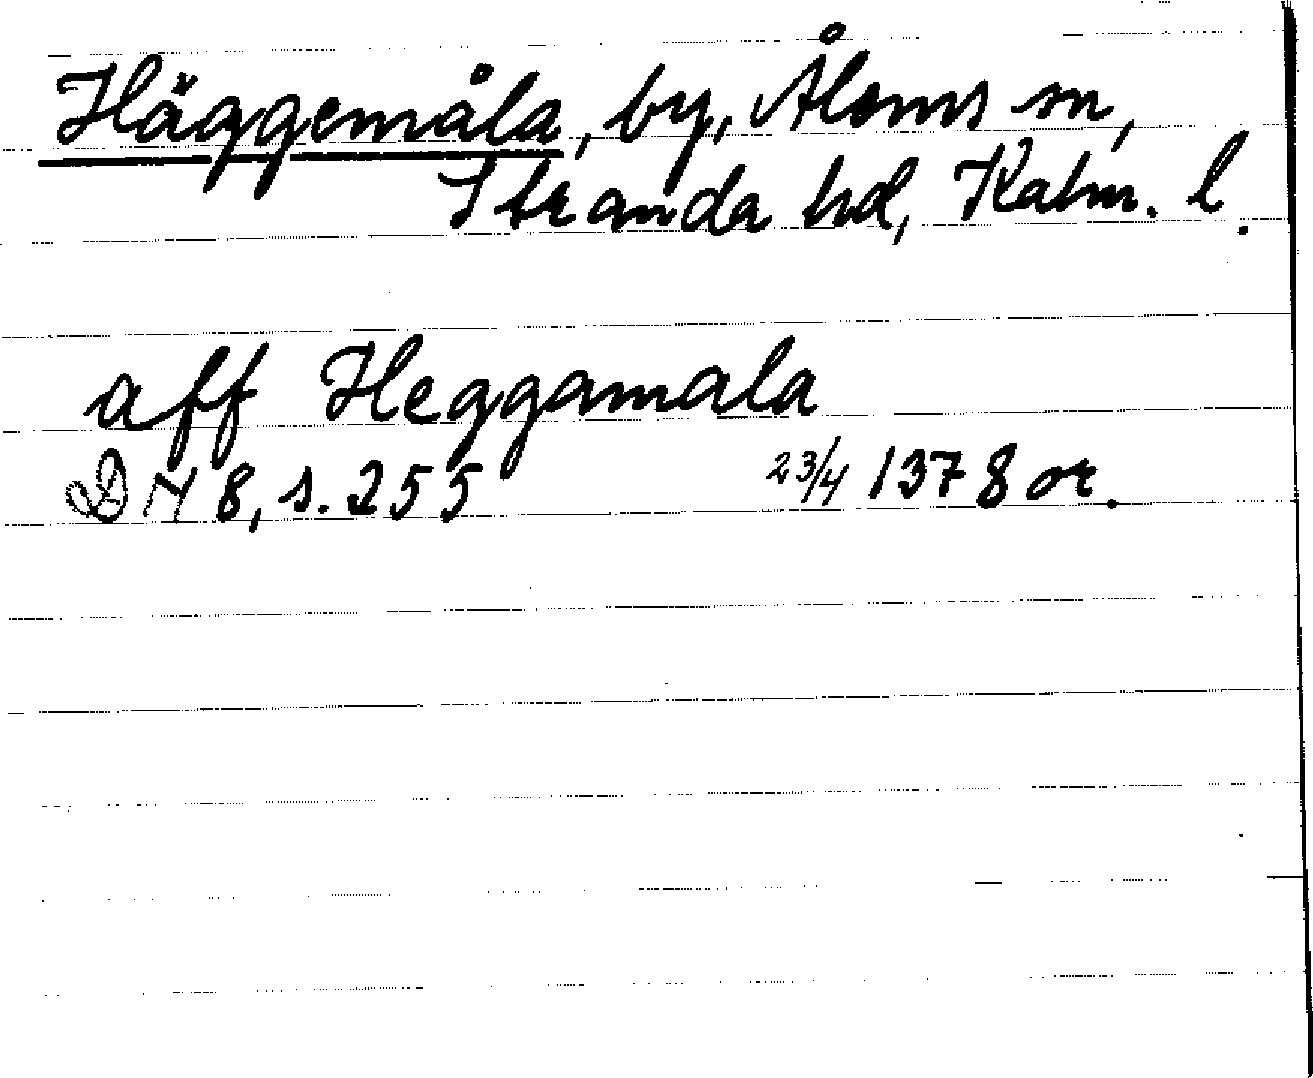 Häggemåla, by, Ålems sn,
Stranda hd, Kalm. l.
aff Heggamala
DN 8, s. 255 23/4 1378 or.